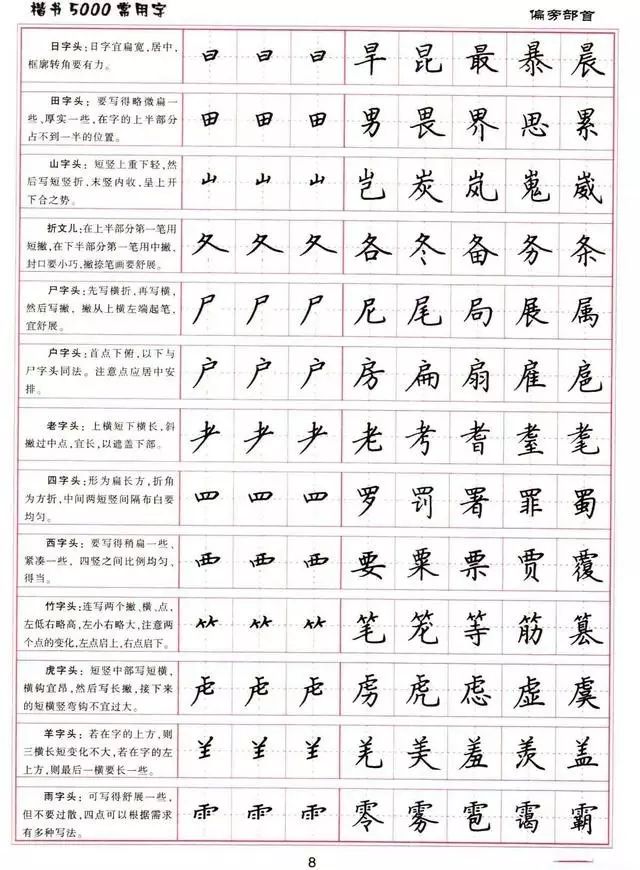 楷书5000常用字
偏旁部首
日字头：日字宜扁宽,居中,
框廓转角要有力。
曰 曰 曰 旱 昆 最 暴 晨
田字头：要写得略微扁一
些,厚实一些,在字的上半部分
占不到一半的位置。
田 田 田 男 畏 界 思 累
山字头：短竖上重下轻,然
后写短竖折,末竖内收,呈上开
下合之势。
山 山 山 岂 炭 岚 嵬 崴
折文儿：在上半部分第一笔用
短撇,在下半部分第一笔用中撇,
封口要小巧,撇捺笔画要舒展。
夂 夂 夂 各 冬 备 务 条
尸字头：先写横折,再写横,
然后写撇，撇从上横左端起笔,
宜舒展。
尸 尸 尸 尼 尾 局 展 属
户字头：首点下俯,以下与
尸字头同法。注意点应居中安
排。
户 户 户 房 扁 扇 雇 扈
老字头：上横短下横长,斜
撇过中点,宜长,以遮盖下部。
耂 耂 耂 老 考 耆 耋 耄
四字头：形为扁长方,折角
为方折,中间两短竖间隔布白要
均匀。
罒 罒 罒 罗 罚 署 罪 蜀
西字头：要写得稍扁一些、
紧凑一些，四竖之间比例均匀、
得当。
覀 覀 覀 要 粟 票 贾 覆
竹字头：连写两个撇、横、点,
左低右略高,左小右略大,注意两
个点的变化,左点启上,右点启下。
⺮ ⺮ ⺮ 笔 笼 等 筋 篡
虎字头：短竖中部写短横,
横钩宜昂,然后写长撇,接下来
的短横竖弯钩不宜过大。
虍 虍 虍 虏 虎 虑 虚 虞
羊字头：若在字的上方,则
三横长短变化不大,若在字的左
上方,则最后一横要长一些。
⺷ ⺷ ⺷ 羌 美 羞 羡 盖
雨字头：可写得舒展一些,
但不要过散,四点可以根据需求
有多种写法。
⻗ ⻗ ⻗ 零 雾 雹 霭 霸
8